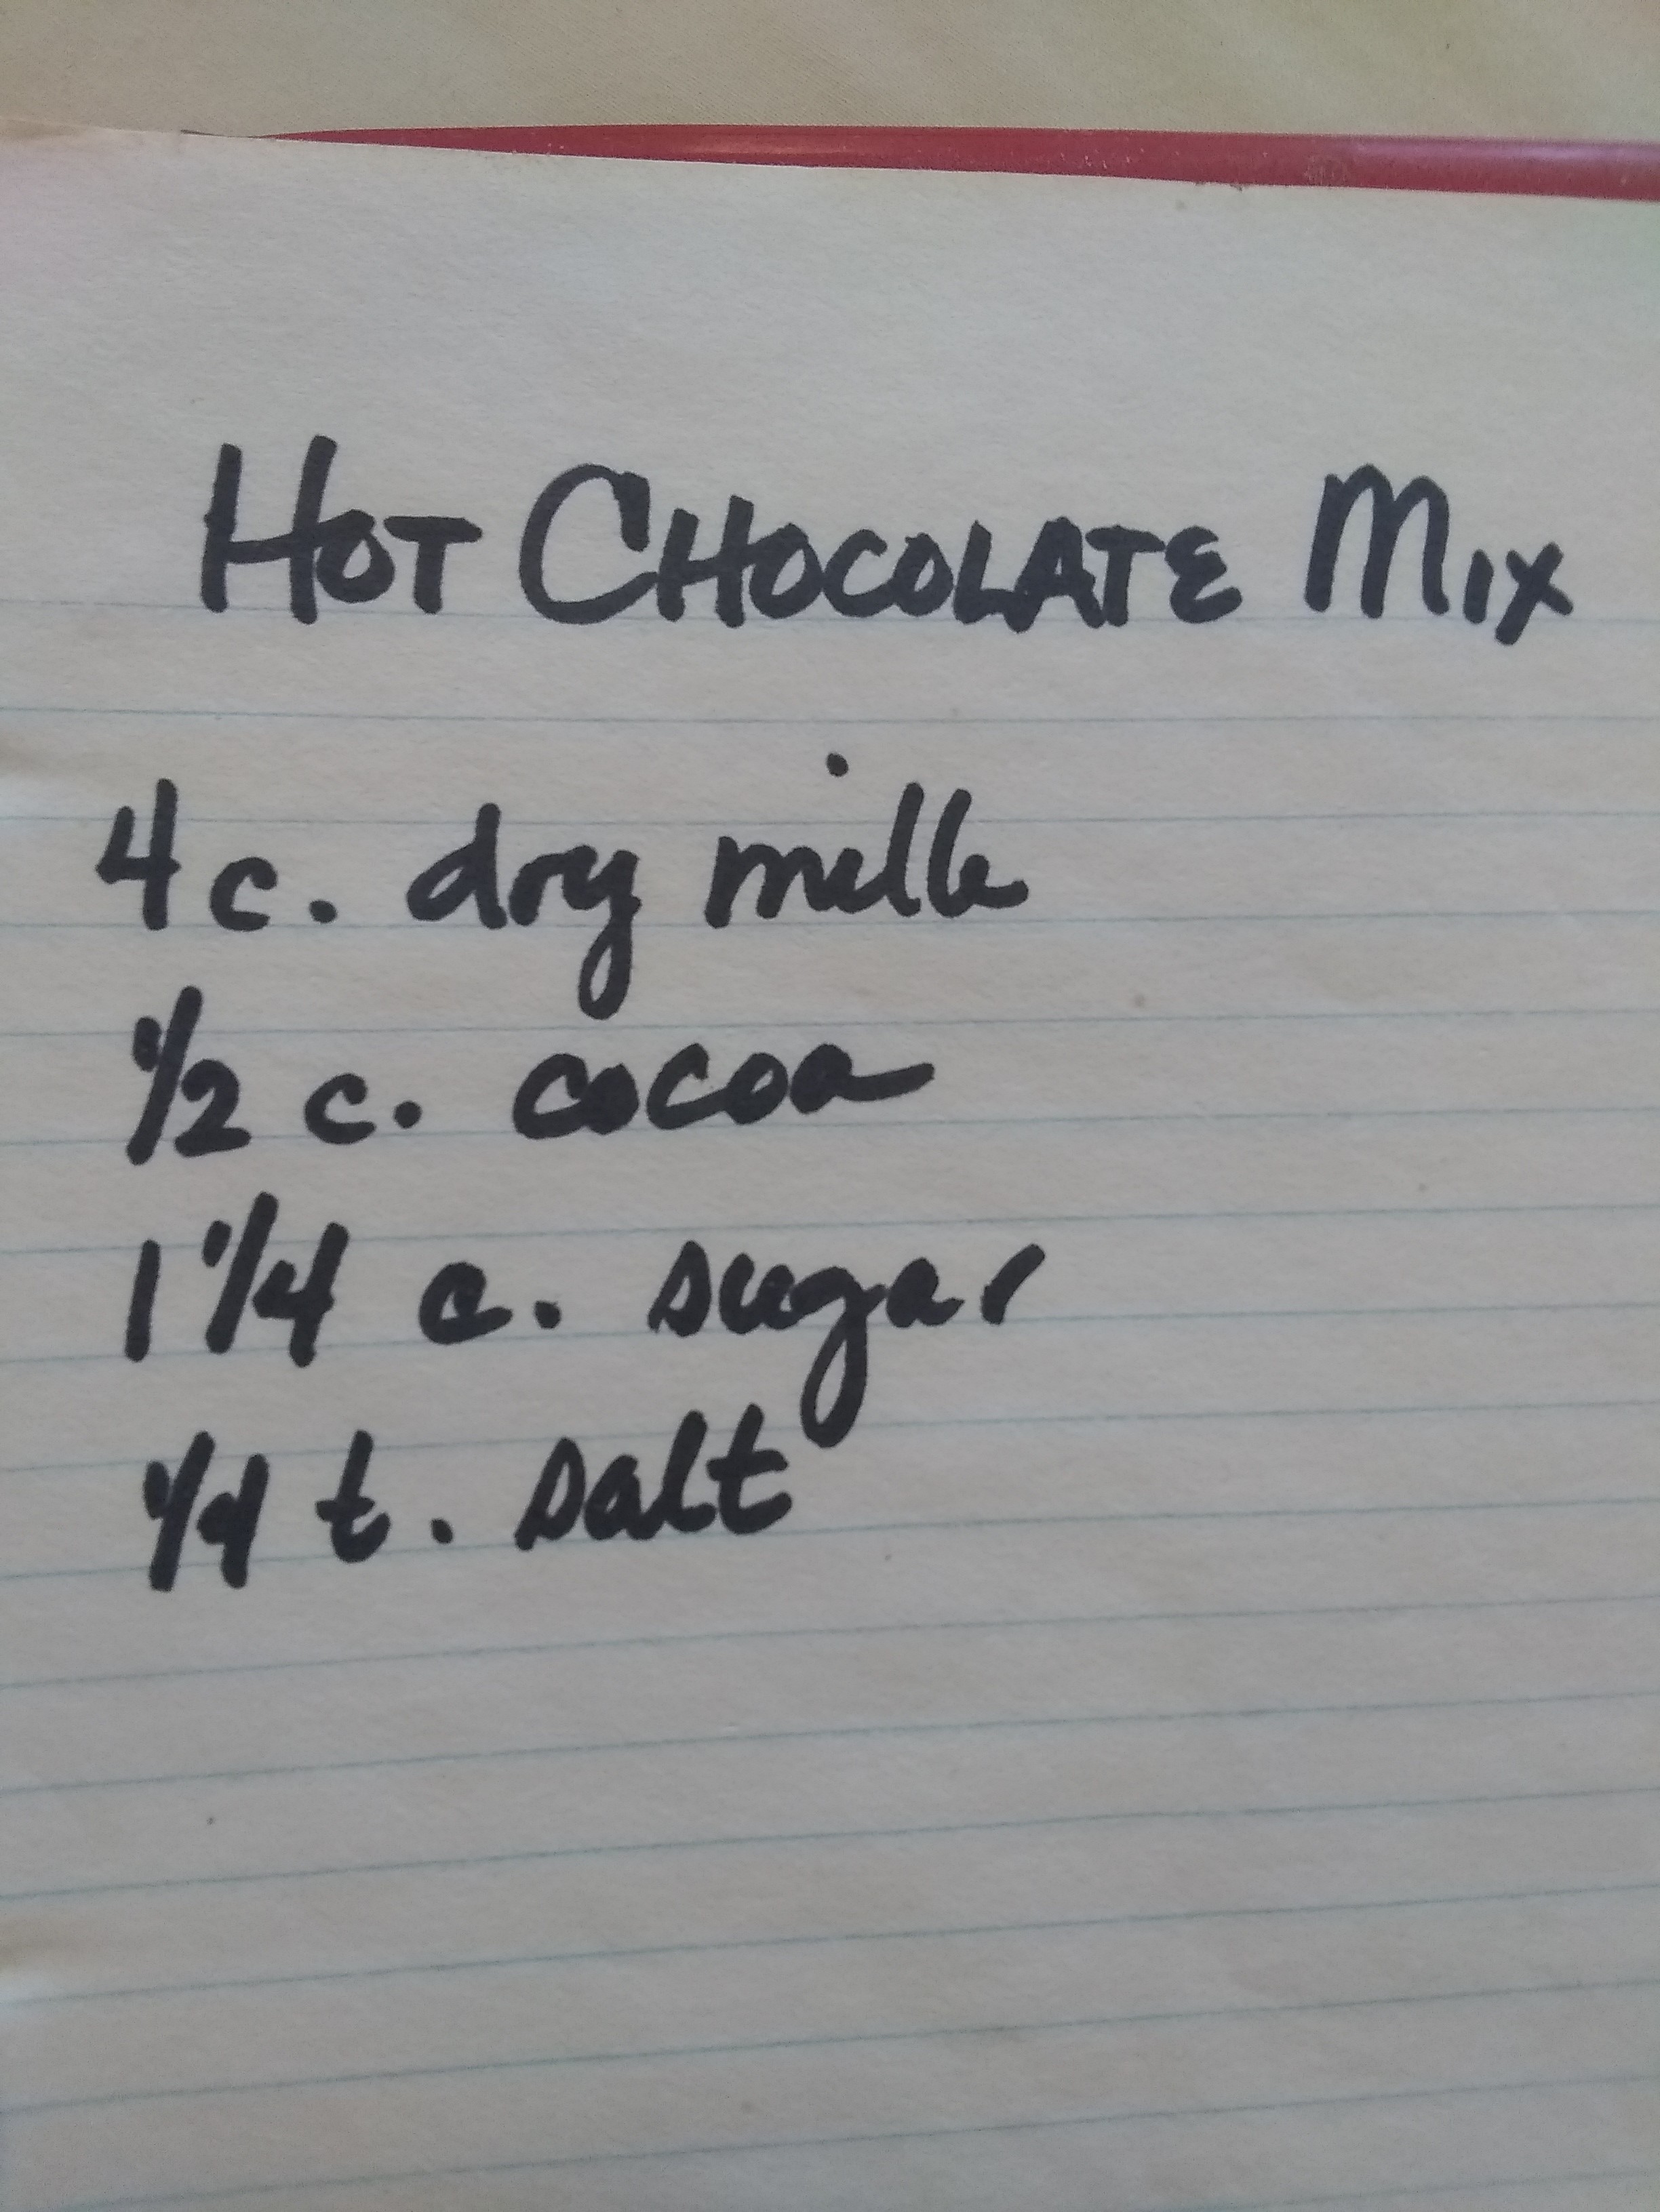 HOT CHOCOLATE MIX
4 c. dry milk
1/2 c. cocoa
1 1/4 c. sugar
1/4 t. salt